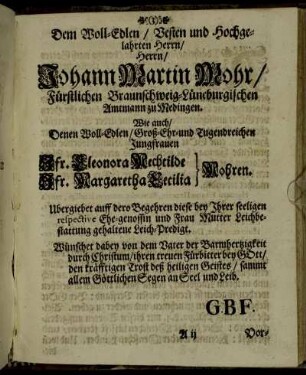 Dem Woll-Edlen / Vesten und Hochge-
lahrten Herrn /
Herrn /
Johann Martin Mohr /
Fürstlichen Braunschweig-Lüneburgischen
Amtmann zu Medingen.
Wie auch /
Denen Woll-Edlen / Groß-Ehr-und Tugendreichen
Jungfrauen
Jfr. Eleonora Mechtilde
Jfr. Margaretha Cecilia } Mohren.
Ubergiebet auff dero Begehren diese bey Ihrer seeligen
respective Ehe-genossin und Frau Mutter Leichbe-
stattung gehaltene Leich-Predigt.
Wünschet dabey von dem Vater der Barmhertzigkeit
durch Christum / ihren treuen Fürbitter bey GOtt /
den kräfftigen Trost deß heiligen Geistes / sammt
allem Göttlichen Segen an Seel und Leib.
G.B.F.
A ij Vor-